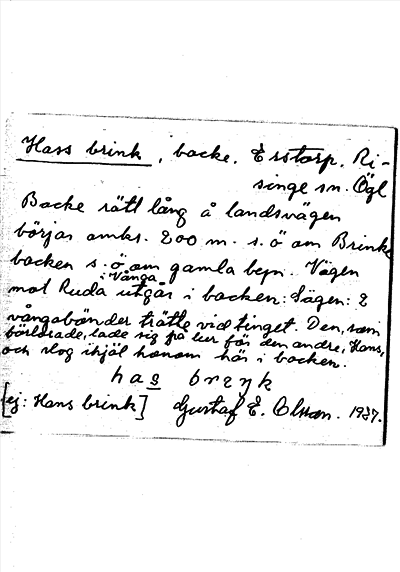 Hass brink, backe. Erstorp. Ri-
singe sn. Ögl
Backe rätt lång å landsvägen
börjar omkr. 200 m. s. ö om Brinke
backen s. ö om gamla beyn. Vägen
mot Ruda i Vånga utgår i backen. Sägen: 2
vångabönder trätte vid tinget. Den, som
förlorade, lade sig på lur för den andre, Hans,
och slog ihjäl honom här i backen.
has brzŋk
[ej: Hans brink] Gustaf E. Olsson. 1937.